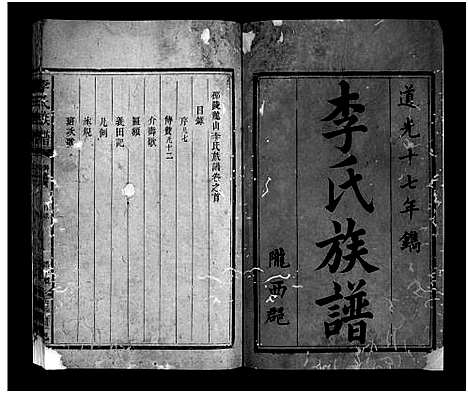 道光十七年鐫
李氏族譜
隴西郡
邵陵龍山李氏族譜卷之首
目錄
序 凡七
傳贊 凡十二
介壽歌
匾額
義田記
凡例
家規
班次歌